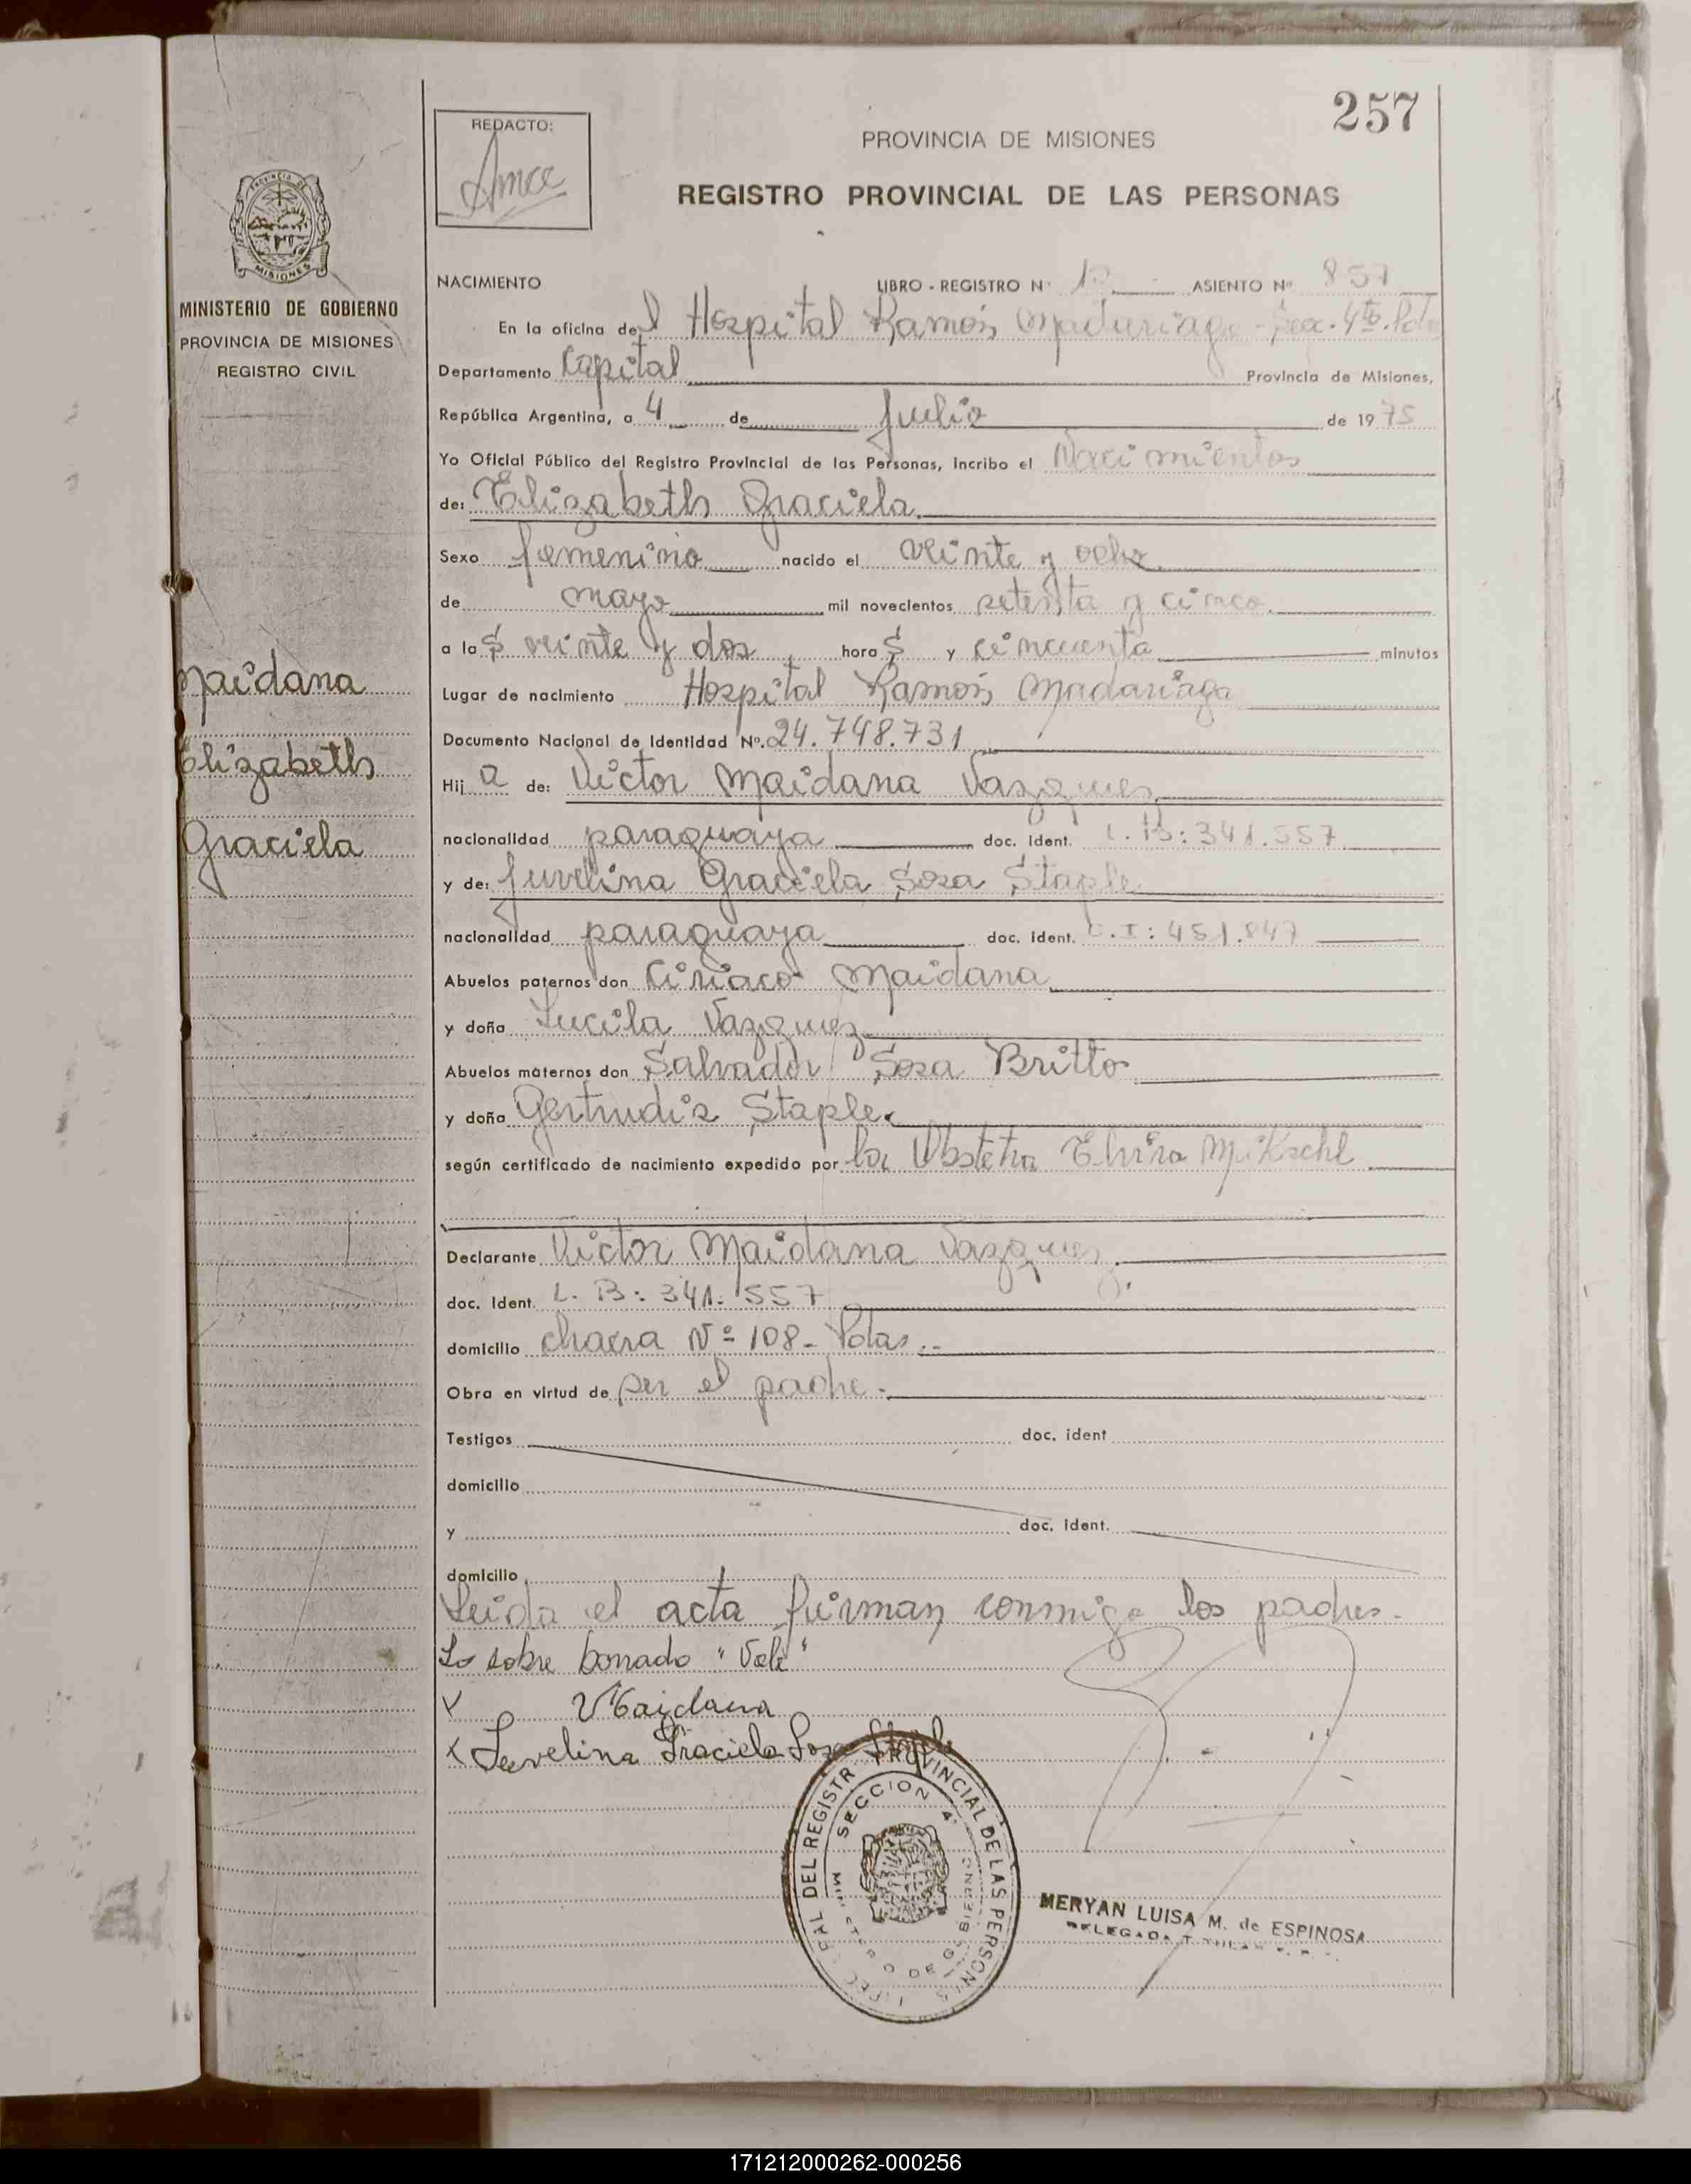 257
REDACTO:
PROVINCIA DE MISIONES
REGISTRO PROVINCIAL DE LAS PERSONAS
PROVINCIA DE
MISIONES
MINISTERIO DE GOBIERNO
PROVINCIA DE MISIONES
REGISTRO CIVIL
NACIMIENTO LIBRO - REGISTRO Nº ASIENTO Nº 857
En la oficina del Hospital Ramón Madariaga - Sec. 4ta. Pdas
Departamento Capital Provincia de Misiones,
República Argentina, a 4 de Julio de 1975
Yo Oficial Público del Registro Provincial de las Personas, Incribo el Nacimientos
de: Elizabeth Graciela
Sexo femenino nacido el veinte y ocho
de mayo mil novecientos setenta y cinco.
a las veinte y dos horas y cincuenta minutos
Maidana
Lugar de nacimiento Hospital Ramón Madariaga
Documento Nacional de Identidad Nº. 24.748.731
Elizabeth
Hija de: Victor Maidana Vazquez
Graciela
nacionalidad paraguaya doc. Ident. L.B: 341.557
y de: Juvelina Graciela Sosa Staple
nacionalidad paraguaya doc. ident. C.I: 451.847
Abuelos paternos don Ciriaco Maidana
y doña Lucila Vazquez
Abuelos maternos don Salvador Sosa Britto
y doña Gertrudis Staple.
según certificado de nacimiento expedido por la Obstetra Elvira Mikschl
Declarante Victor Maidana Vazquez
doc. Ident. L. B: 341. 557
domicilio chacra Nº 108- Pdas.
Obra en virtud de ser el padre.
Testigos doc. ident
domicilio
y doc. ident.
domicilio
Leida el acta firman conmigo los padres.
Lo sobre borrado "Vale"
VMaidana
Juvelina Graciela Sosa Staple
DEL REGISTR PROVINCIAL DE LAS PERSONAS
SECCION 4ª
DE GOBIERNO
MERYAN LUISA M. de ESPINOSA
171212000262-000256